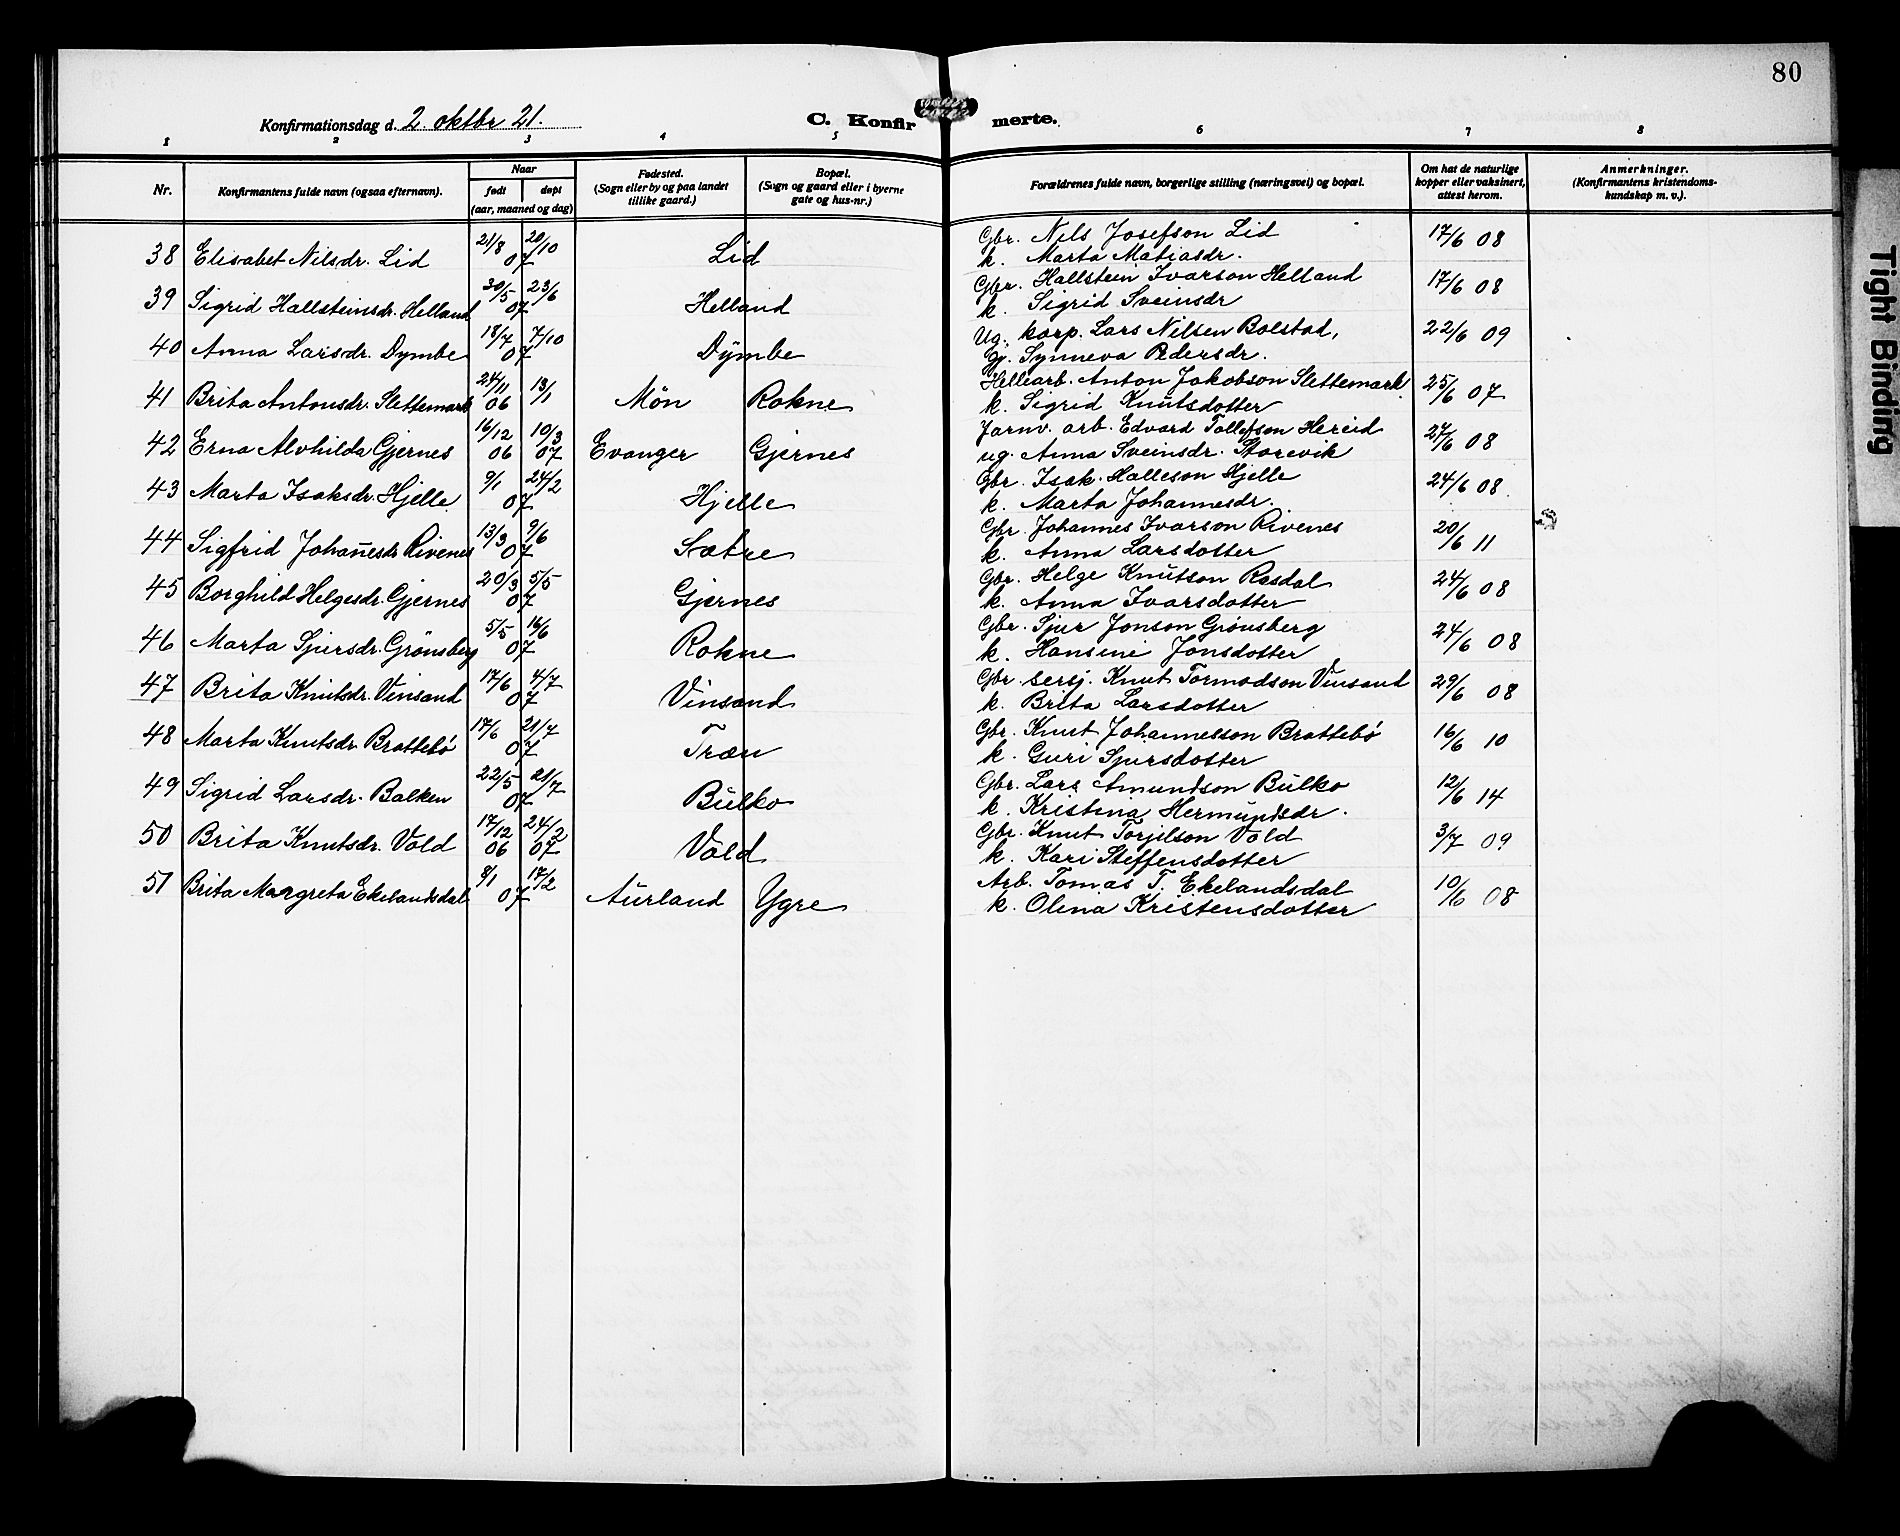 80
Konfirmationsdag d. 2. oktbr 21.
C. Konfirmerte.
1 2 3 4 5 6 7 8
Nr. Konfirmantens fulde navn (ogsaa efternavn). Naar født døpt (aar, maaned og dag) Fødested. (Sogn eller by og paa landet tillike gaard.) Bopæl. (Sogn og gaard eller i byerne gate og hus-nr.) Forældrenes fulde navn, borgerlige stilling (næringsvei) og bopæl. Om hat de naturlige kopper eller vaksinert, attest herom. Anmerkninger. (Konfirmantens kristendomskundskap m. v.).
38 Elisabet Nilsdr. Lid 21/8 20/10 07 Lid Gbr. Nils Josefson Lid 17/6 08
k. Marta Matiasdr.
39 Sigrid Hallsteinsdr. Helland 30/5 23/6 07 Helland Gbr. Hallstein Ivarson Helland 17/6 08
k. Sigrid Sveinsdr
40 Anna Larsdr. Dymbe 18/7 7/10 07 Dymbe Ug. korp. Lars Nilsen Bolstad, 22/6 09
Gj. Synneva Pedersdr.
41 Brita Antonsdr. Slettemark 24/11 06 13/1 Møn Rokne Helliarb. Anton Jakobson Slettemark 25/6 07
k. Sigrid Knutsdotter
42 Erna Alvhilda Gjernes 16/12 06 10/3 07 Evanger Gjernes Jarnv. arb. Edvard Tollefson Hereid 24/6 08
ug. Anna Sveinsdr. Storevik
43 Marta Isaksdr. Hjelle 9/1 24/2 07 Hjelle Gbr. Isak Halleson Hjelle 24/6 08
k. Marta Johannesdr.
44 Sigfrid Johañesdr Rivenes 13/3 9/6 07 Sætre Gbr. Johannes Ivarson Rivenes 20/6 11
k. Anna Larsdotter
45 Borghild Helgesdr. Gjernes 20/3 5/5 07 Gjernes Gbr. Helge Knutson Rasdal 24/6 08
k. Anna Ivarsdotter
46 Marta Sjursdr. Grønsberg 5/5 16/6 07 Rokne Gbr. Sjur Jonson Grønsberg 24/6 08
k. Hansine Jonsdotter
47 Brita Knutsdr. Vinsand 17/6 4/7 07 Vinsand Gbr sersj. Knut Tormodson Vinsand 29/6 08
k. Brita Larsdotter
48 Marta Knutsdr Brattebó 17/6 21/7 07 Træn Gbr. Knut Johannesson Brattebó 16/6 10
k. Guri Sjursdotter
49 Sigrid Larsdr. Balken 22/5 21/7 07 Bulko Gbr. Lars Amundson Bulko 12/6 14
k. Kristina Hermundsdr.
50 Brita Knutsdr. Vold 17/12 06 24/2 07 Vold Gbr. Knut Torjilson Vold 3/7 09
k. Kari Steffensdotter
51 Brita Margreta Ekelandsdal 8/1 17/2 07 Aurland Ygre Arb. Tomas T. Ekelandsdal 10/6 08
k. Olena Kristensdotter
Tight Binding